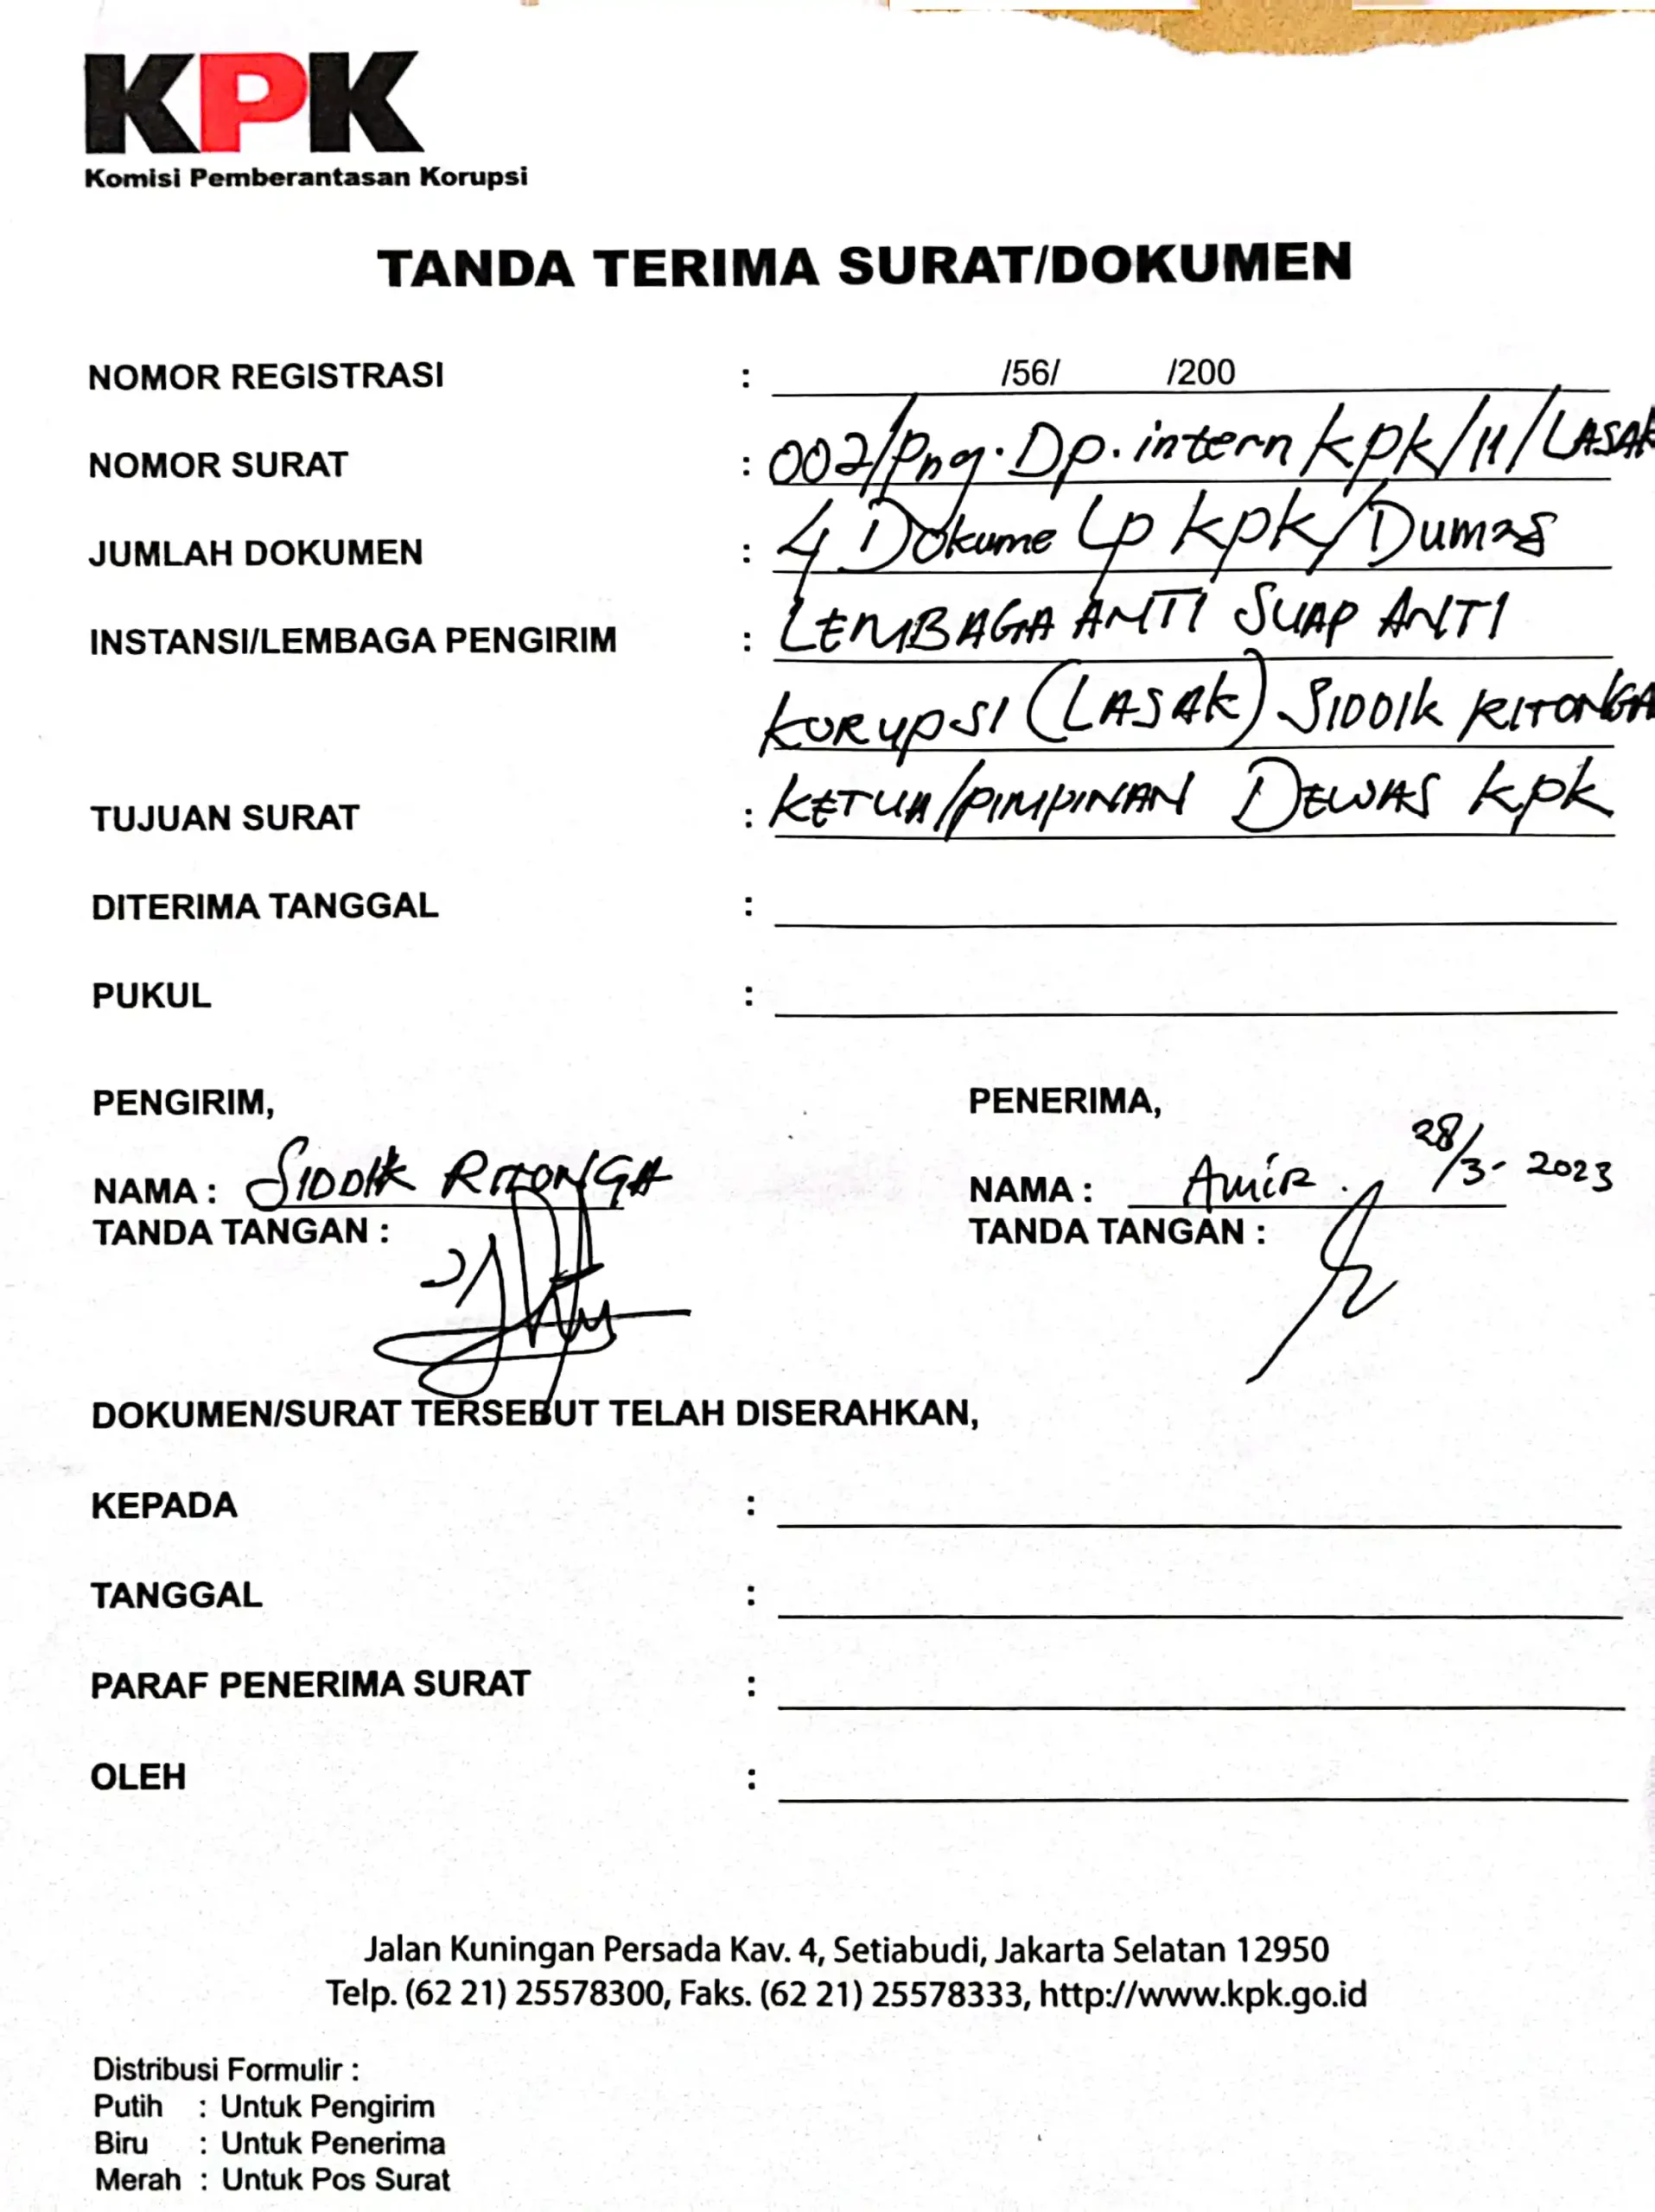 KPK
Komisi Pemberantasan Korupsi
TANDA TERIMA SURAT/DOKUMEN
NOMOR REGISTRASI : /56/ /200
NOMOR SURAT : 002/Png.Dp.intern kpk/11/LASAK
JUMLAH DOKUMEN : 4 Dokume Lp kpk/Dumas
INSTANSI/LEMBAGA PENGIRIM : LEMBAGA ANTI SUAP ANTI
KORUPSI (LASAK) SIDDIK RITONGA
TUJUAN SURAT : KETUA/PIMPINAN DEWAS kpk
DITERIMA TANGGAL :
PUKUL :
PENGIRIM, PENERIMA,
NAMA : SIDDIK RITONGA NAMA : Amir. 28/3- 2023
TANDA TANGAN : TANDA TANGAN :
DOKUMEN/SURAT TERSEBUT TELAH DISERAHKAN,
KEPADA :
TANGGAL :
PARAF PENERIMA SURAT :
OLEH :
Jalan Kuningan Persada Kav. 4, Setiabudi, Jakarta Selatan 12950
Telp. (62 21) 25578300, Faks. (62 21) 25578333, http://www.kpk.go.id
Distribusi Formulir :
Putih : Untuk Pengirim
Biru : Untuk Penerima
Merah : Untuk Pos Surat